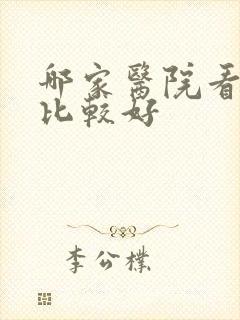 那家醫院看
比較好
李公樸